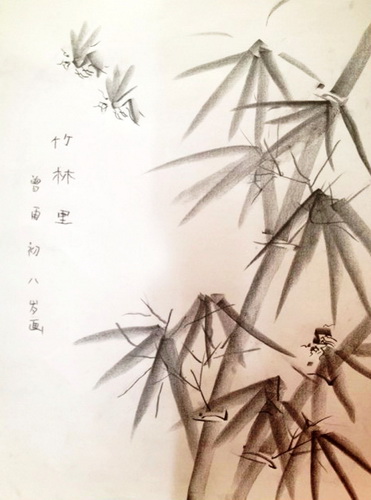 竹林里
曾雨初八岁画